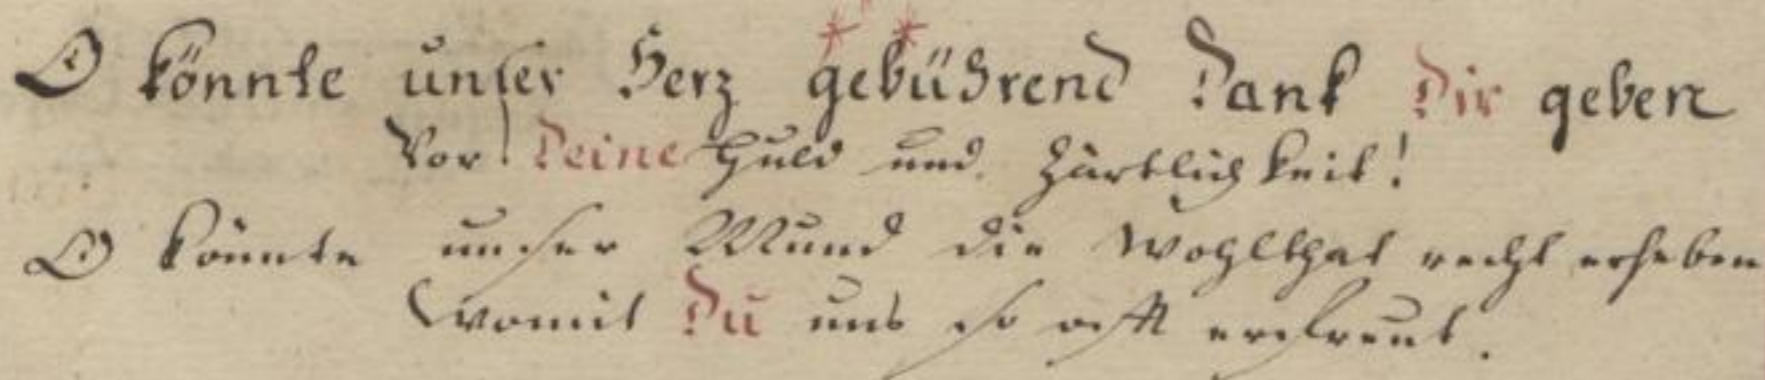 O könnte unser Herz gebührend Dank Dir geben
Vor Deine Huld und Zärtlichkeit!
O könnte unser Mund die Wohlthat recht erheben
Womit Du uns so offt erfreut.